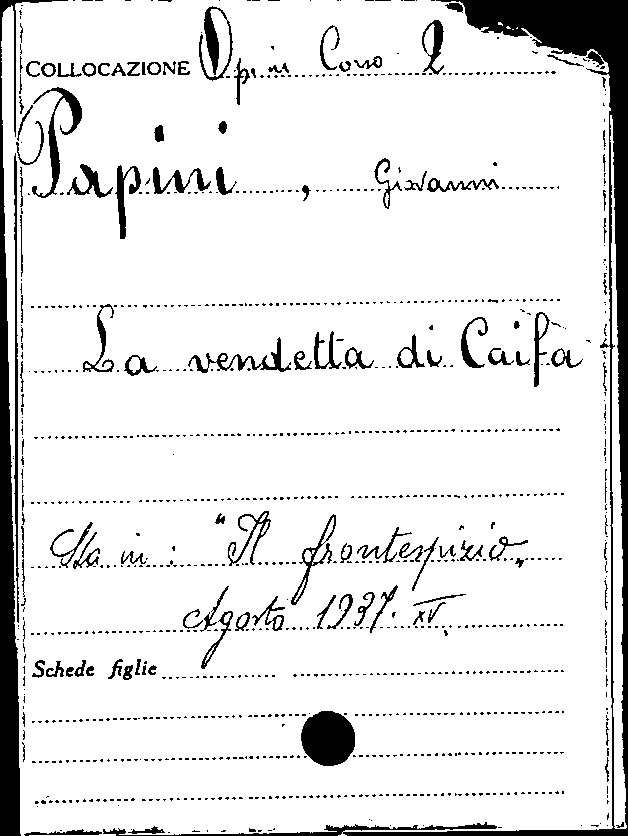 COLLOCAZIONE Op. in Corso 2
Papini, Giovanni
La vendetta di Caifa
Sta in: "Il frontespizio„
Agosto 1937. XV.
Schede figlie